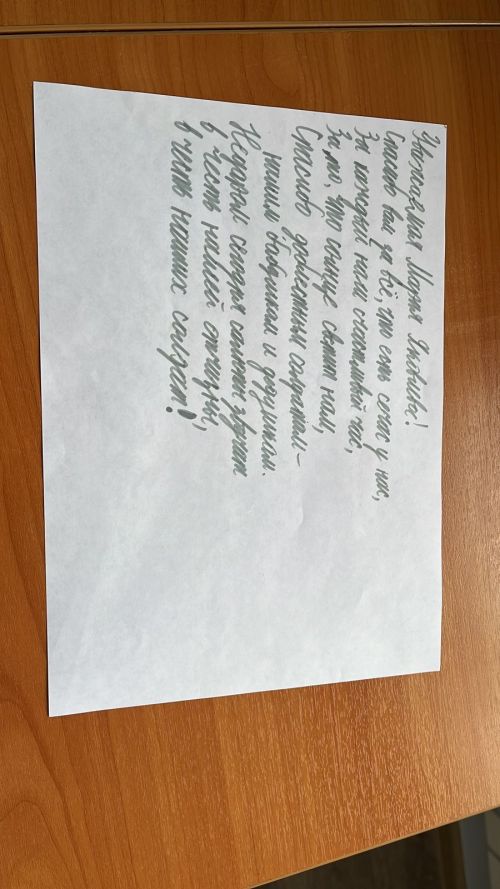 Уважаемая Марья Львовна!
Спасибо вам за всё, что есть сейчас у нас,
За каждый наш счастливый час,
За то, что солнце светит нам,
Спасибо доблестным солдатам –
нашим дедушкам и
Недаром сегодня салюты звучат
в честь нашей отчизны,
в честь наших солдат!